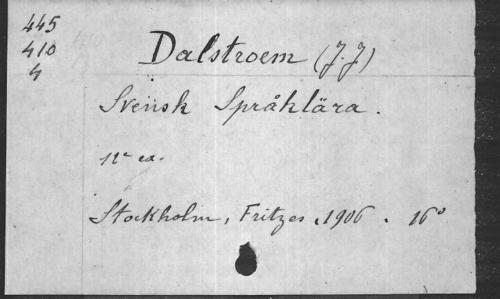 445
410
4
Dalstroem (J. J)
Svensk Språklära.
11e ed.
Stockholm, Fritzes, 1906. 16°